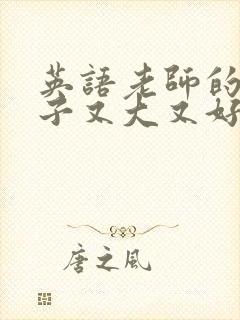 英語老師的
子又大又好
唐之风